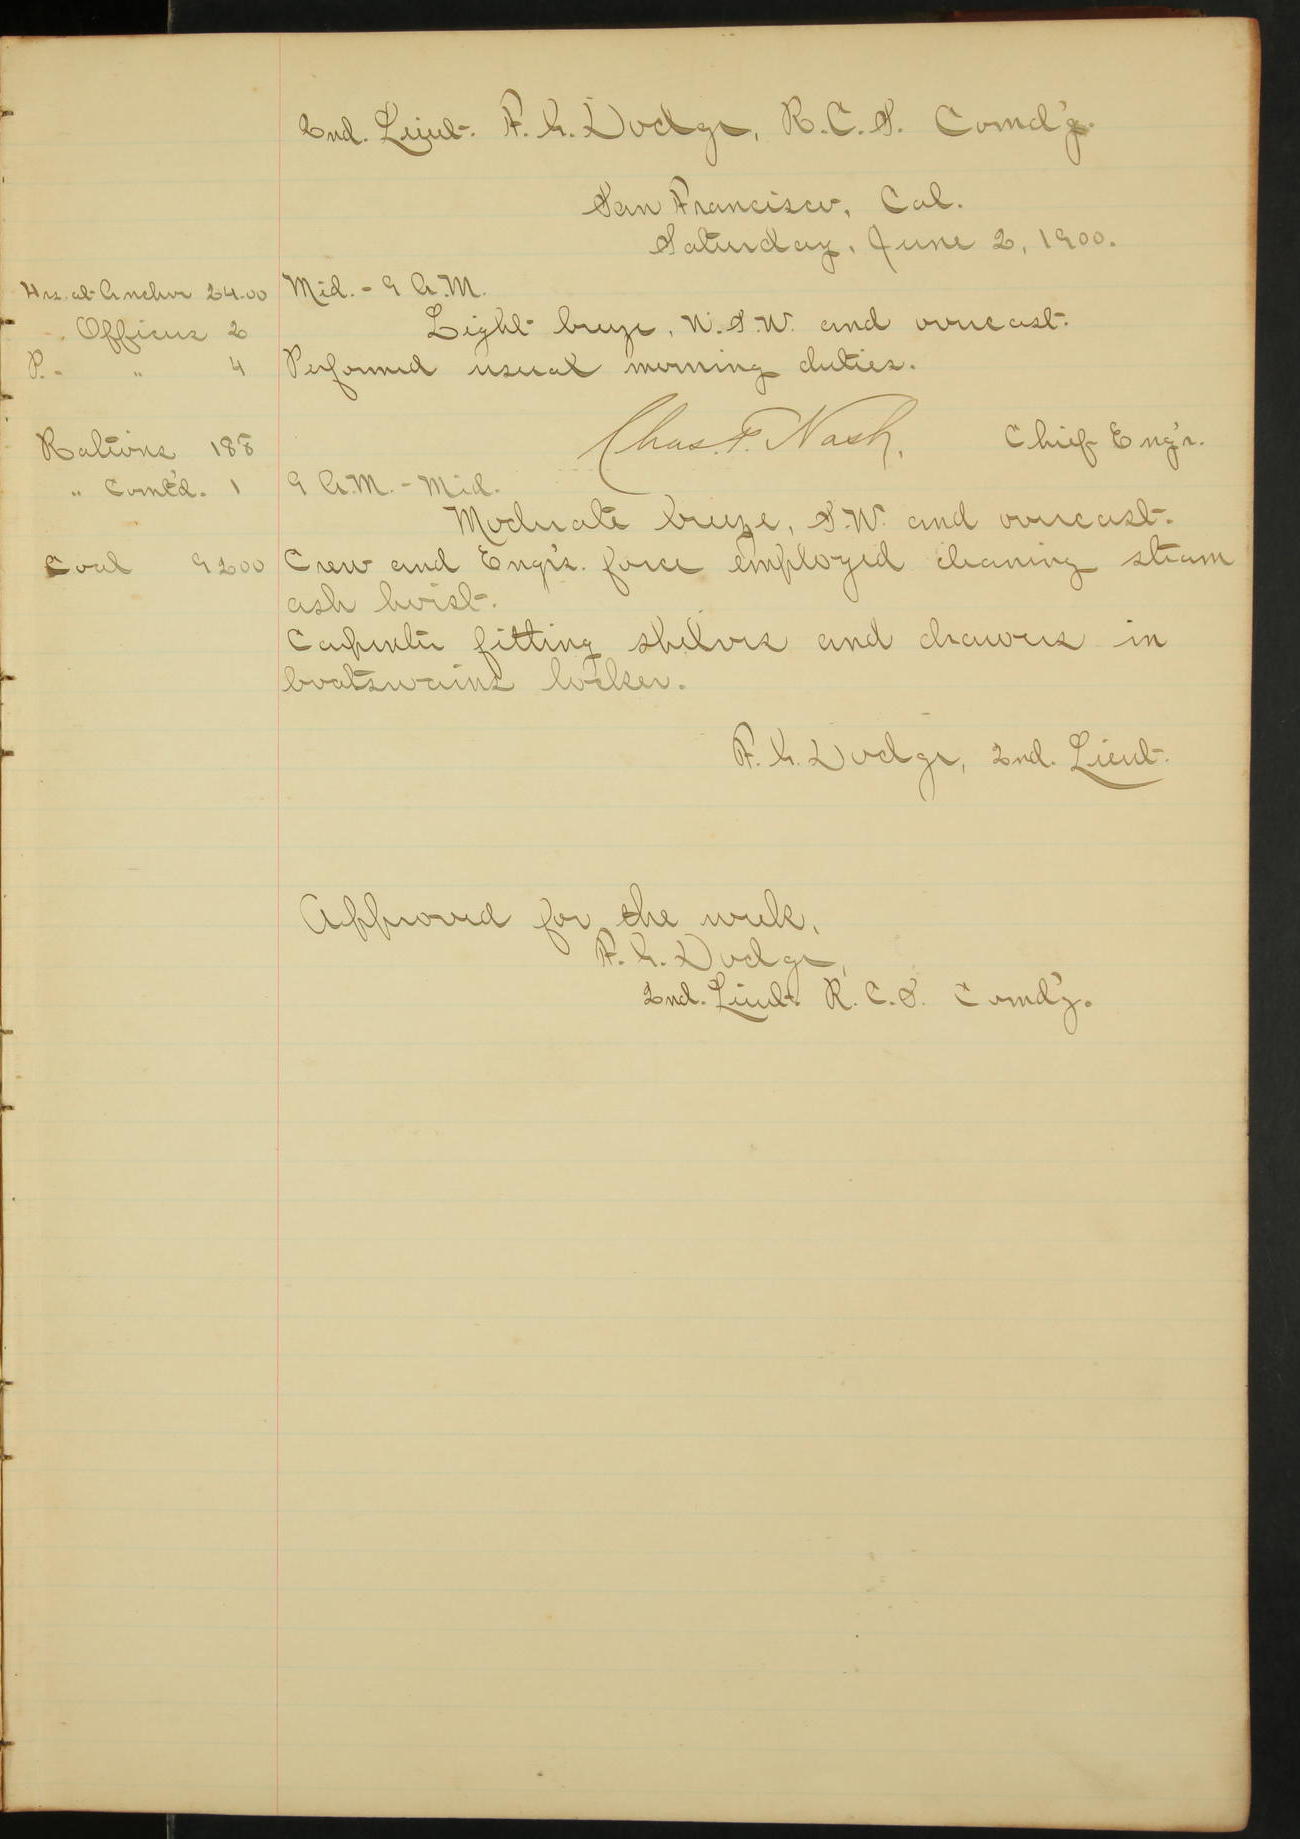 2nd. Lieut. F. G. Dodge, R.C.S. Comd'g.
San Francisco, Cal.
Saturday, June 2, 1900.
Hrs. at Anchor 24.00
Mid. - 9 A.M.
Officers 2
Light breeze, W.S.W. and overcast.
P. - " 4
Performed usual morning duties.
Chas. F. Nash, Chief Eng'r.
Rations 188
" Com'td. 1
9 A.M. - Mid.
Moderate breeze, S.W. and overcast.
Coal 9200
Crew and Eng'rs. force employed cleaning steam
ash hoist.
Carpenter fitting shelves and drawers in
boatswains locker.
F. G. Dodge, 2nd. Lieut.
Approved for the week,
F. G. Dodge,
2nd. Lieut. R.C.S. Comd'g.